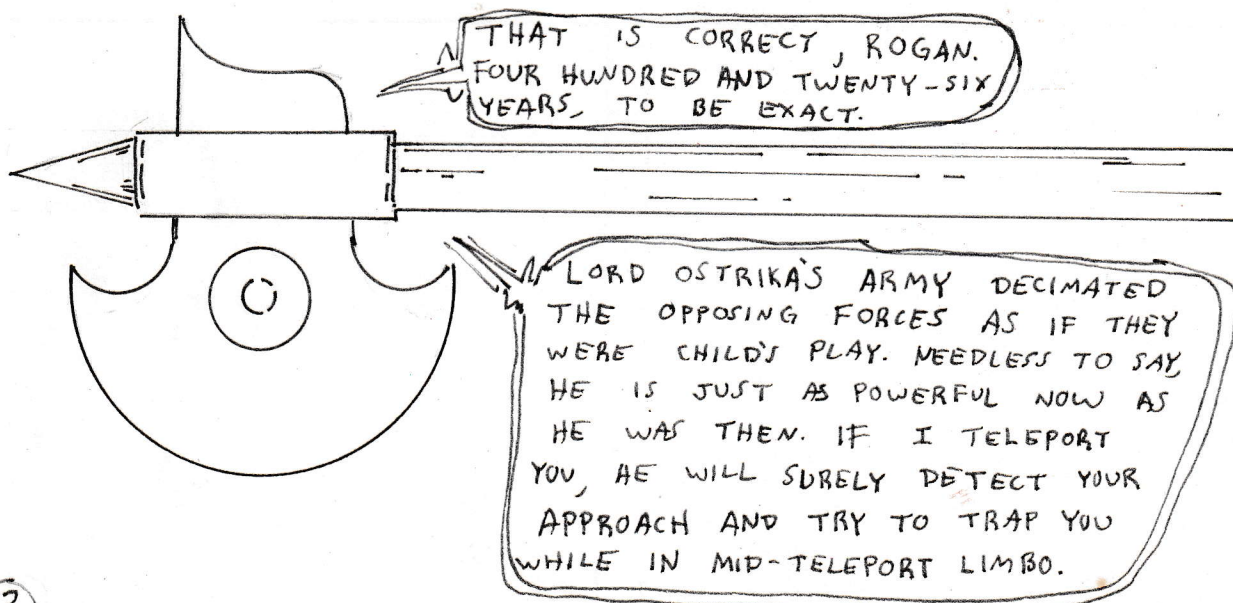 THAT IS CORRECT, ROGAN.
FOUR HUNDRED AND TWENTY-SIX
YEARS, TO BE EXACT.
LORD OSTRIKA'S ARMY DECIMATED
THE OPPOSING FORCES AS IF THEY
WERE CHILD'S PLAY. NEEDLESS TO SAY,
HE IS JUST AS POWERFUL NOW AS
HE WAS THEN. IF I TELEPORT
YOU, HE WILL SURELY DETECT YOUR
APPROACH AND TRY TO TRAP YOU
WHILE IN MID-TELEPORT LIMBO.